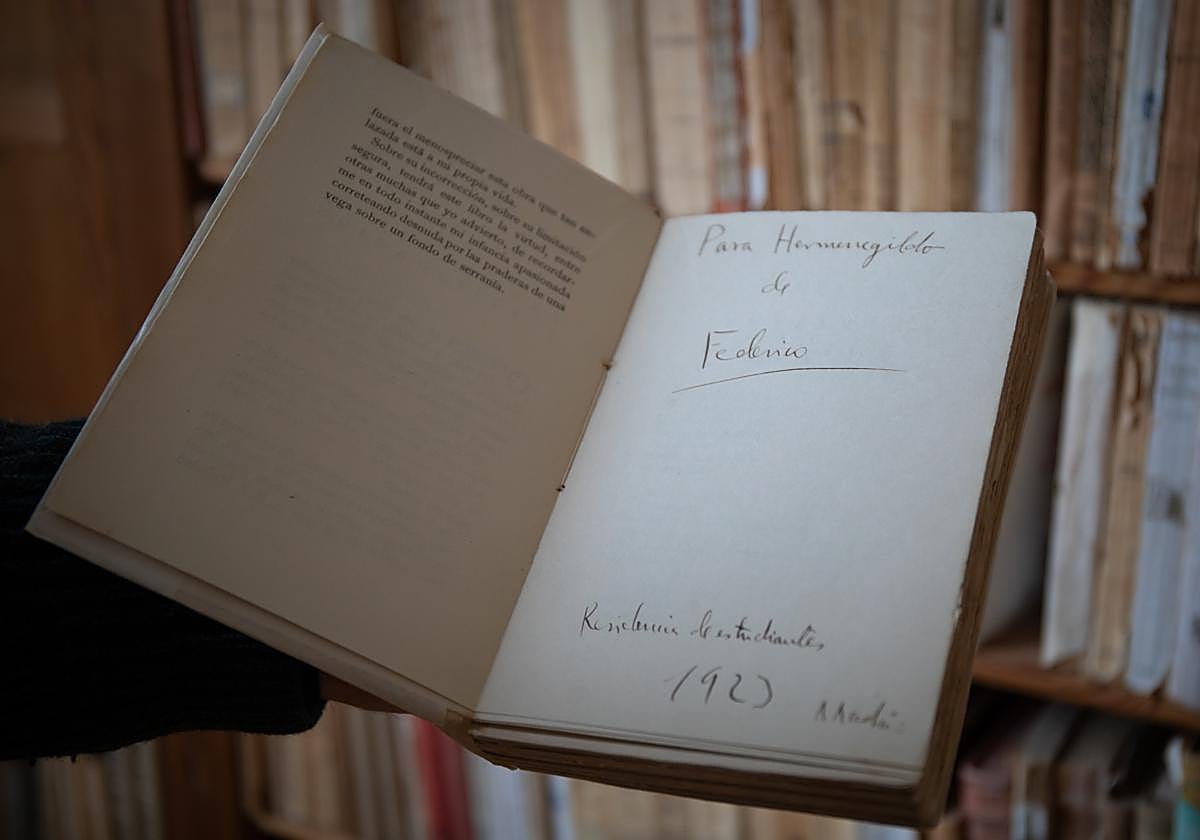 fuera el menospreciar esta obra que tan en-
lazada está a mi propia vida.
Sobre su incorrección, sobre su limitación
segura, tendrá este libro la virtud, entre
otras muchas que yo advierto, de recordar-
me en todo instante mi infancia apasionada
correteando desnuda por las praderas de una
vega sobre un fondo de serranía.
Para Hermenegildo
de
Federico
Residencia de estudiantes
1923